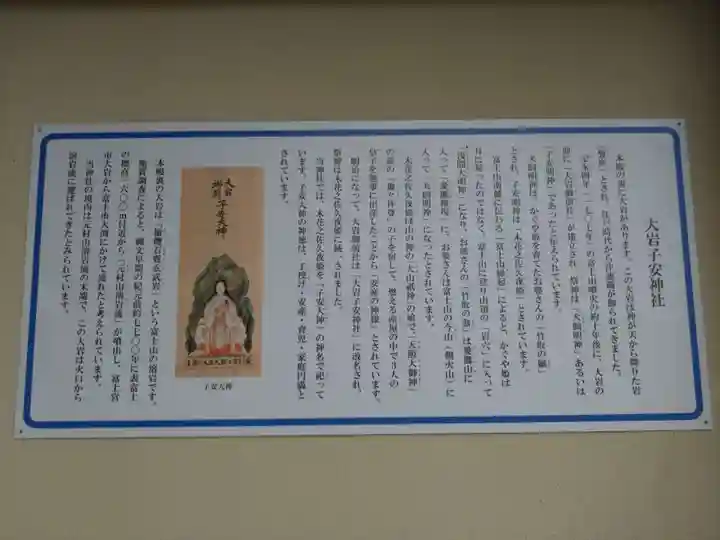 大岩子安神社
本殿の裏に大岩があります。この大岩は神が天から降りた岩
「磐座」とされ、江戸時代から注連縄が飾られてきました。
宝永四年（一七〇七年）の富士山噴火の約十年後に、大岩の
前に「大岩御前社」が建立され、祭神は「犬飼明神」あるいは
「子安明神」であったと伝えられています。
犬飼明神は、かぐや姫を育てたお爺さんの「竹取の翁」
とされ、子安明神は「木花之佐久夜姫」とされています。
富士山南麓に伝わる「富士山縁起」によると、かぐや姫は
月に帰ったのではなく、富士山に登り山頂の「岩穴」に入って
「浅間大明神」になり、お爺さんの「竹取の翁」は愛鷹山に
入って「愛鷹権現」に、お婆さんは富士山の今山（棚火山）に
入って「犬飼明神」になったとされています。
木花之佐久夜姫は山の神の「大山祇神」の娘で、「天照大御神」
の孫の「瓊々杵尊」の子を宿して、燃える産屋の中で３人の
皇子を無事に出産したことから「安産の神様」とされています。
明治になって、大岩御前社は「大岩子安神社」に改名され、
祭神は木花之佐久夜姫に統一されました。
当神社では、木花之佐久夜姫を「子安大神」の神名で祀って
います。子安大神の神徳は、子授け・安産・育児・家庭円満と
されています。
大岩
子安大神
子安大神
本殿裏の大岩は、「橄欖石玄武岩」という富士山の溶岩です。
地質調査によると、縄文早期の紀元前約七七〇〇年に表富士
の標高一六〇〇ｍ付近から「元村山溶岩流」が噴出し、富士宮
市大岩から富士市大淵にかけて流れたと考えられています。
当神社の境内は元村山溶岩流の末端で、この大岩は火口から
溶岩流に運ばれてきたとみられています。